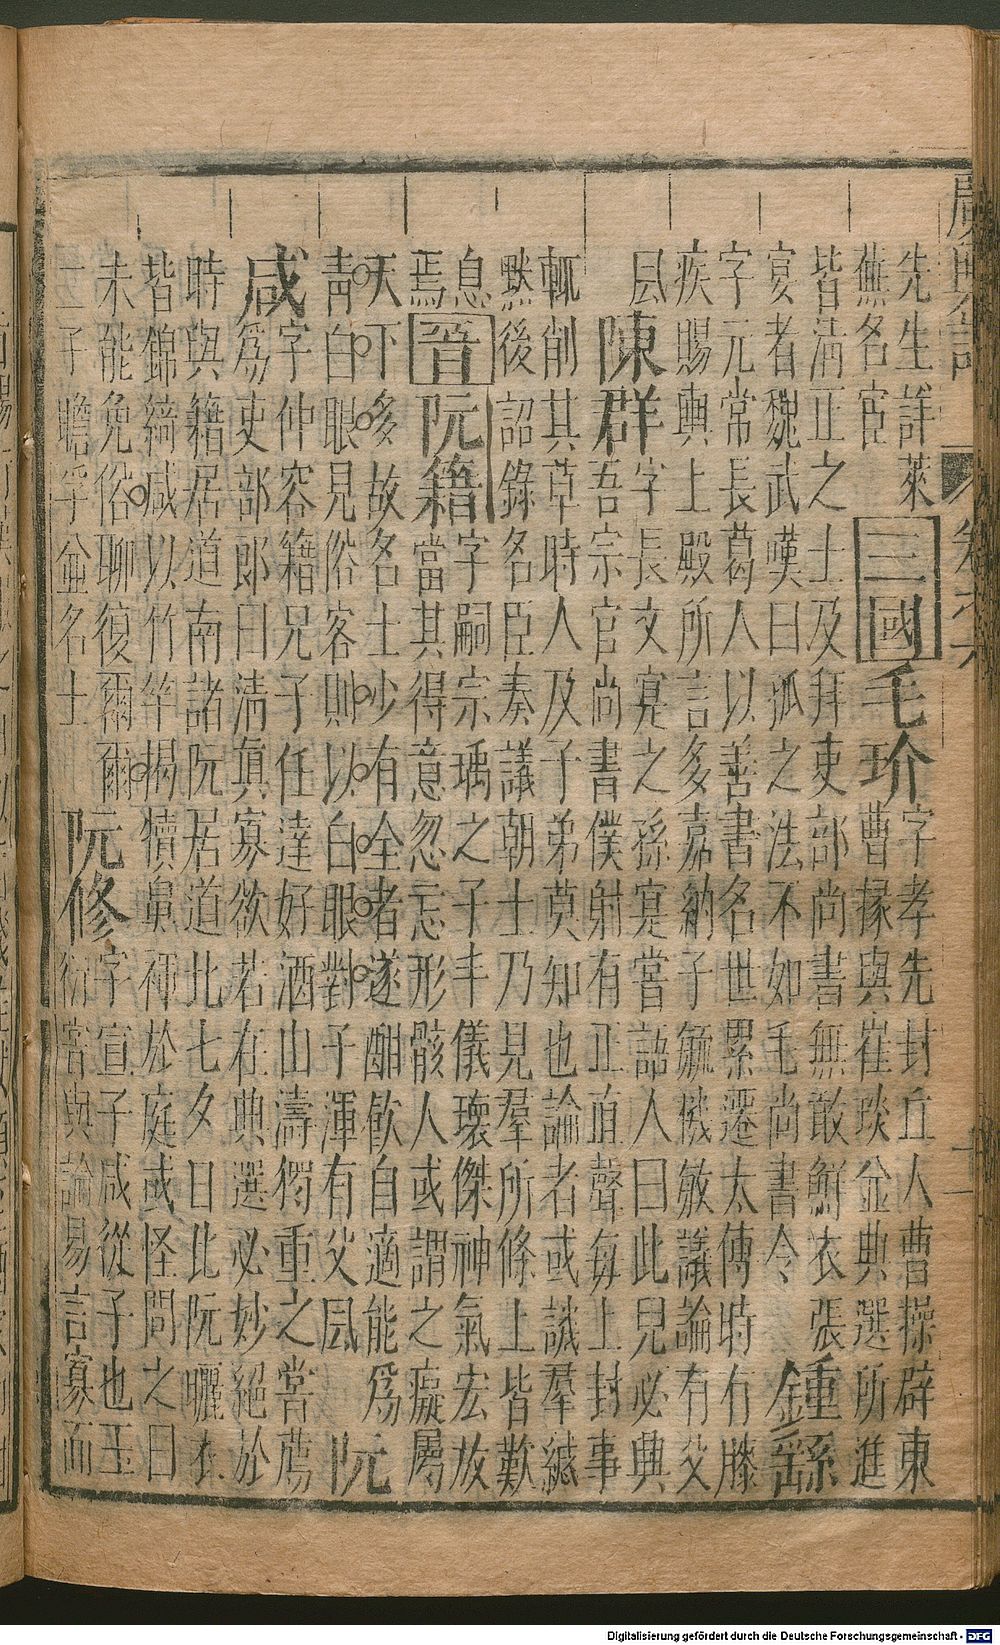 廣輿記 卷之六 十一
先生詳萊
蕪名宦
三國
毛玠
字孝先封丘人曹操辟東
曹掾與崔琰並典選所進
皆清正之士及拜吏部尚書無敢鮮衣張
宴者魏武嘆曰孤之法不如毛尚書令
鍾繇
字元常長葛人以善書名世累遷太傅時有膝
疾賜輿上殿所言多嘉納子毓機敏議論有父
風
陳群
字長文寔之孫寔嘗語人曰此兒必興
吾宗官尚書僕射有正直聲每上封事
輒削其草時人及子弟莫知也論者或譏羣緘
默後詔錄名臣奏議朝士乃見羣所條上皆歎
息
焉
晉
阮籍
字嗣宗瑀之子丰儀瓌傑神氣宏放
當其得意忽忘形骸人或謂之癡屬
天下多故名士少有全者遂酣飲自適能爲
靑白眼見俗客則以白眼對子渾有父風
阮
咸
字仲容籍兄子任達好酒山濤獨重之嘗薦
爲吏部郎曰淸眞寡欲若在典選必妙絕於
時與籍居道南諸阮居道北七夕日北阮曬衣
皆錦綺咸以竹竿揭犢鼻褌於庭或怪問之曰
未能免俗聊復爾爾
二子瞻孚並名士
阮修
字宣子咸從子也王
衍嘗與論易言寡而
Digitalisierung gefördert durch die Deutsche Forschungsgemeinschaft - DFG